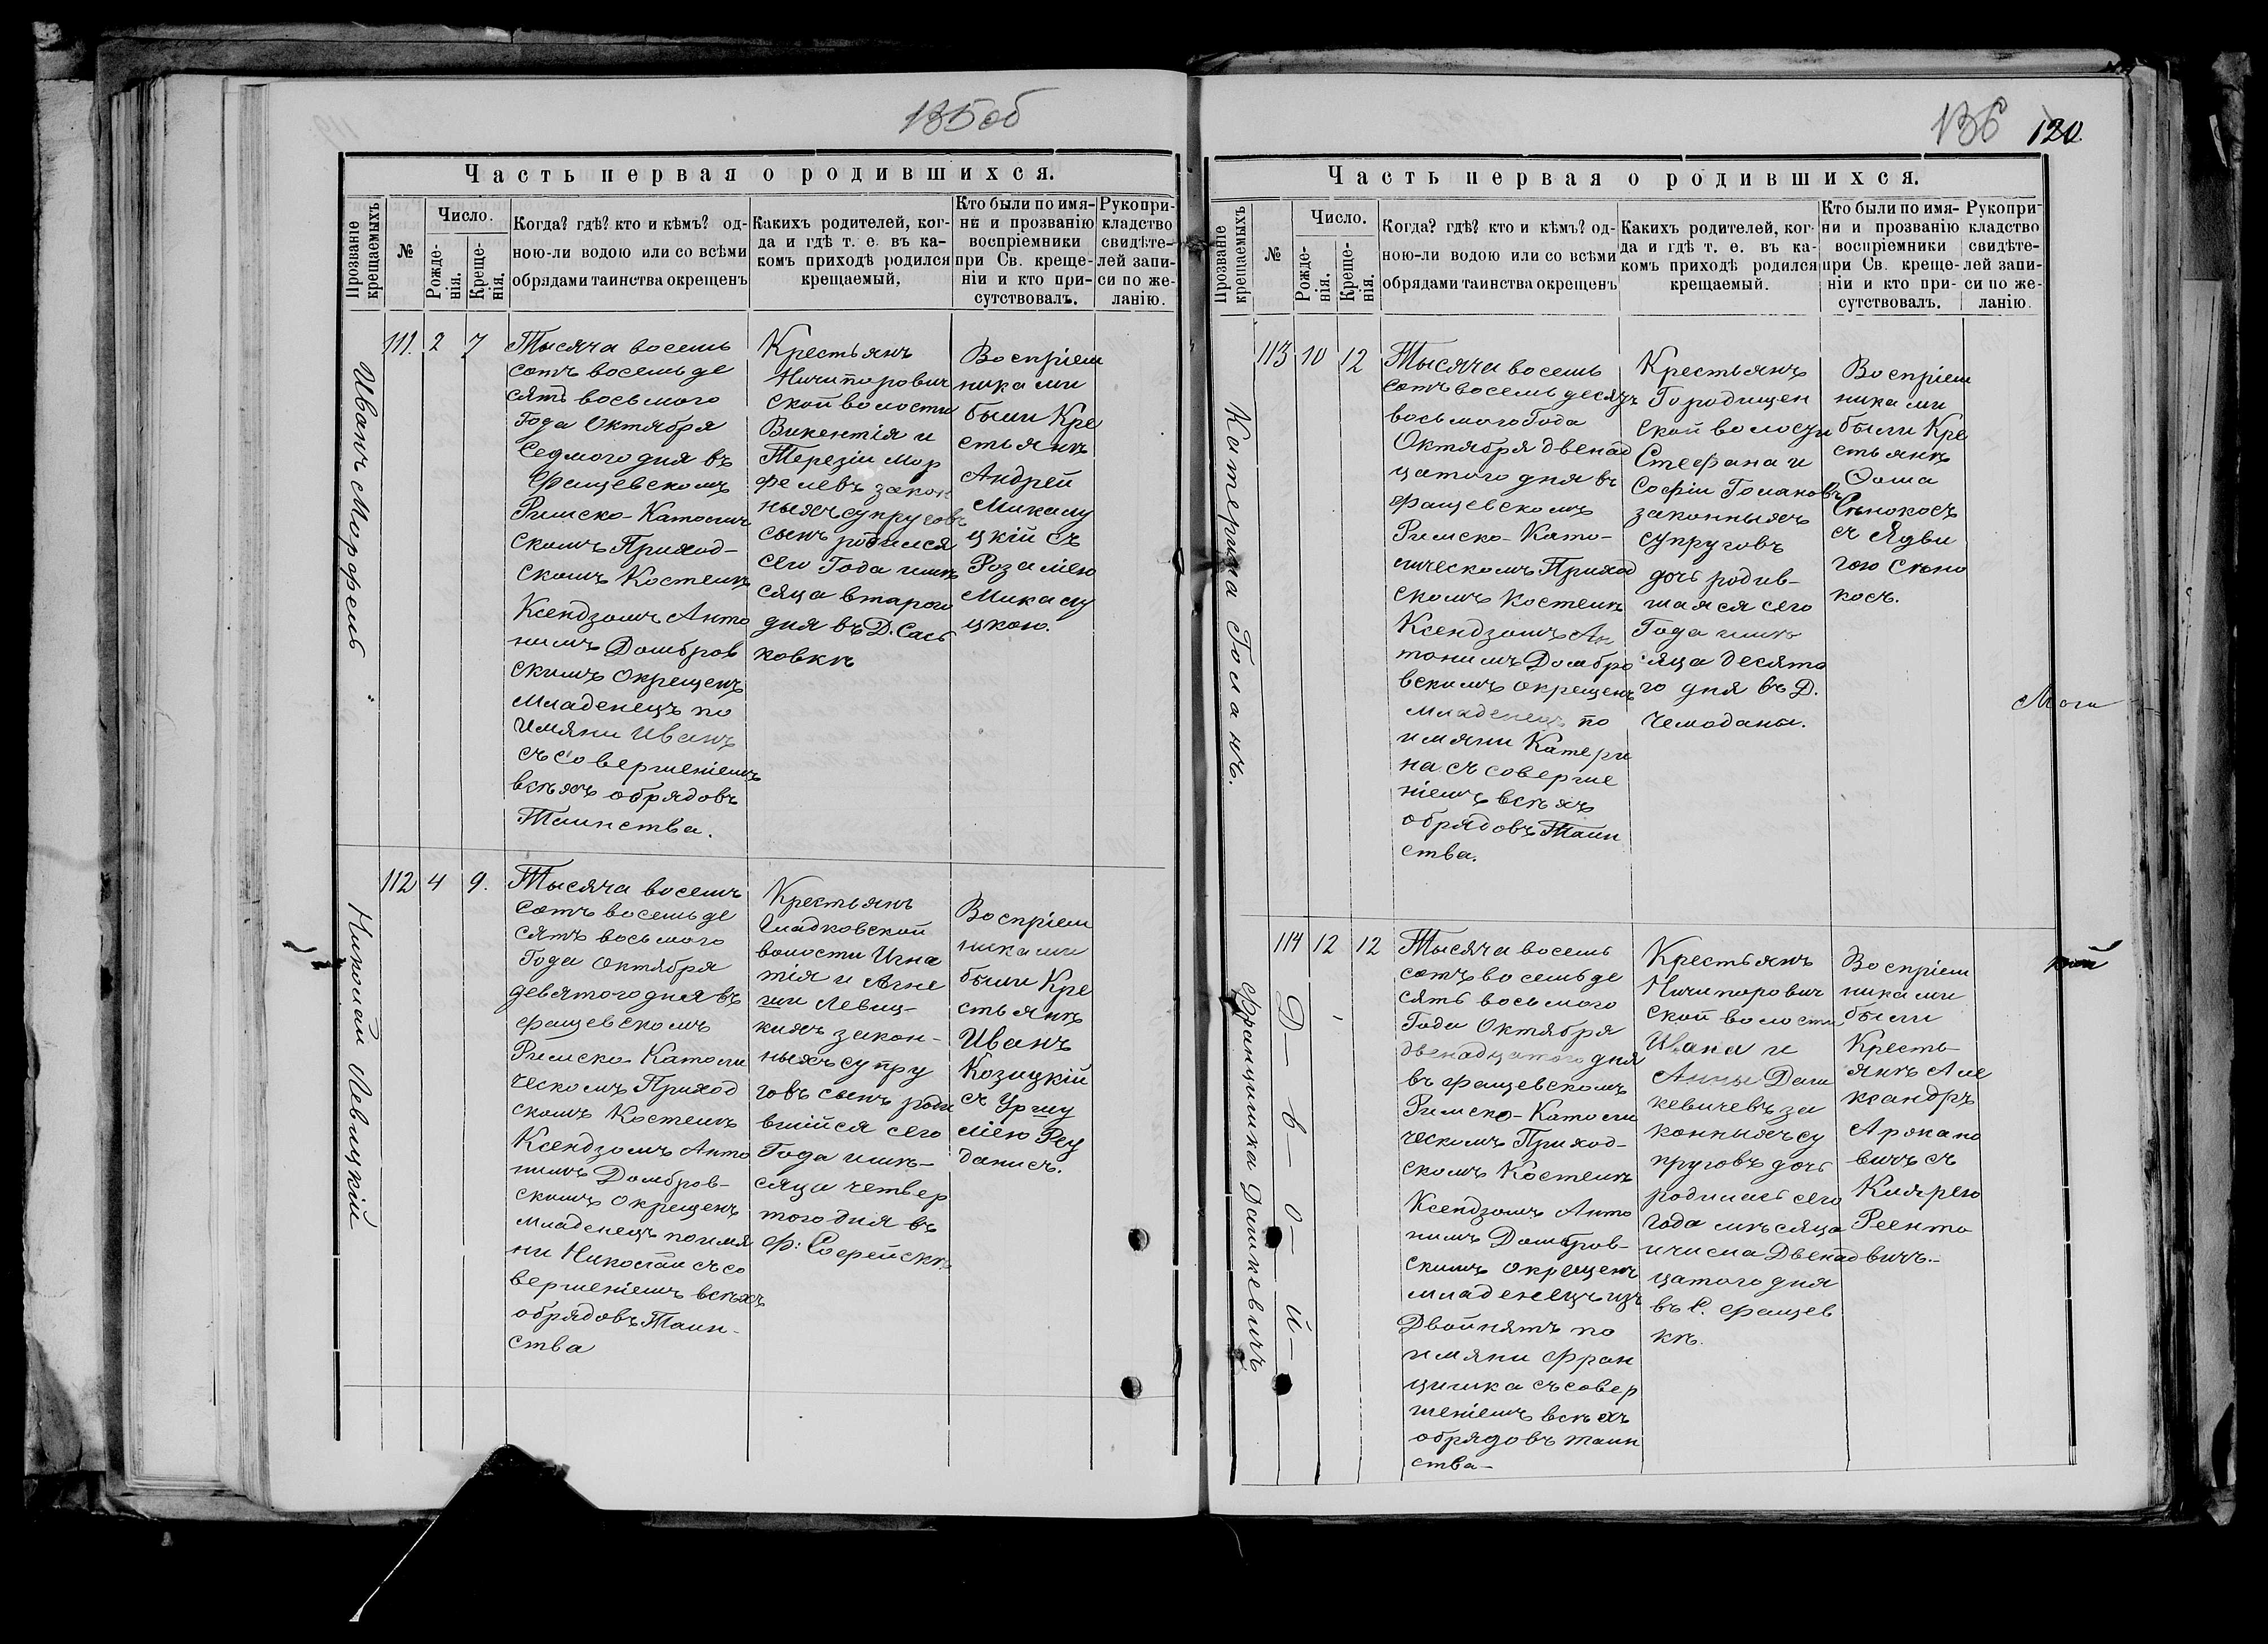 135об
Часть первая о родившихся.
Прозваніе крещаемыхъ
№
Число.
Рожде-
нія.
Креще-
нія.
Когда? гдѣ? кто и кѣмъ? од-
ною-ли водою или со всѣми
обрядами таинства окрещенъ
Какихъ родителей, ког-
да и гдѣ т. е. въ ка-
комъ приходѣ родился
крещаемый,
Кто были по имя-
нѣ и прозванію
воспріемники
при Св. креще-
ніи и кто при-
сутствовалъ.
Рукопри-
кладство
свидѣте-
лей запи-
си по же-
ланію.
Иванъ Мирфель
111. 2 7
Тысяча восемь
сотъ восемьде
сятъ восьмого
Года Октября
Седмого дня въ
Фащевскомъ
Римско-Католич
скомъ Приход-
скомъ Костелѣ
Ксендзомъ Анто
нимъ Домбров
скимъ окрещенъ
Младенецъ по
Имяни Иванъ
съ совершеніемъ
всѣхъ обрядовъ
Таинства.
Крестьянъ
Ничипорович
ской волости
Викентія и
Терезіи Мор
фелевъ закон
ныхъ супруговъ
сынъ родился
сего Года и мѣ
сяца втарого
дня въ Д. Сась
ковкѣ
Воспріем
никами
были Кре
стьянѣ
Андрей
Микалу
цкій съ
Розамею
Микалу
цкою.
Николай Левицкій
112 4 9.
Тысяча восемъ
Сотъ восемьде
сятъ восьмого
Года Октября
девятого дня въ
Фащевскомъ
Римско-Католи
ческомъ Приход
скомъ Костелѣ
Ксендзомъ Анто
нимъ Домбров-
скимъ окрещенъ
Младенецъ по имя
ни Николай съ со
вершеніемъ всѣхъ
обрядовъ Таин-
ства
Крестьянъ
Сладковской
волости Игна
тія и Агне
ши Левиц-
кихъ закон-
ныхъ супру
говъ сынъ роди
вшійся сего
Года и мѣ-
сяца четвер
того дня въ
Ф: Софейскѣ
Воспріем
никами
были Кре
стьянѣ
Иванъ
Козицкій
съ Уршу
лію Реу
данисъ.
136 120
Часть первая о родившихся.
Прозваніе крещаемыхъ
№
Число.
Рожде-
нія.
Креще-
нія.
Когда? гдѣ? кто и кѣмъ? од-
ною-ли водою или со всѣми
обрядами таинства окрещенъ
Какихъ родителей, ког-
да и гдѣ т. е. въ ка-
комъ приходѣ родился
крещаемый.
Кто были по имя-
ни и прозванію
воспріемники
при Св. креще-
ніи и кто при-
сутствовалъ.
Рукопри-
кладство
свидѣте-
лей запи-
си по же-
ланію.
Катерина Голанъ.
113 10 12
Тысяча восемь
сотъ восемьдесятъ
восьмого Года
Октября двенад
цатого дня въ
Фащевскомъ
Римско-Като-
лическомъ Приход
скомъ Костелѣ
Ксендзомъ Ан
тонимъ Домбро
вскимъ окрещенъ
Младенецъ по
имяни Катери
на съ соверше
ніемъ всѣхъ
обрядовъ Таин
ства.
Крестьянъ
Городищен
ской волости
Стефана и
Софіи Голановъ
законныхъ
супруговъ
дочь родив-
шаяся сего
Года и мѣ
сяца десято
го дня въ Д.
Чемоданы.
Воспріем
никами
были Кре
стьянѣ
Ѳома
Сѣнокосъ
съ Ядви
гою Сѣно
косъ.
Моги
Францишка Дашкевичъ
Д-в-о-й-
114 12 12
Тысяча восемь
сотъ восемьде
сять восьмого
Года Октября
двенадцатого дня
въ Фащевскомъ
Римско-Католи
ческомъ Приход-
скомъ Костелѣ
Ксендзомъ Анто
нимъ Домбров-
скимъ окрещенъ
младенецъ изъ
Двойнятъ по
имяни Фран
цишка съ совер
шеніемъ всѣхъ
обрядовъ таин
ства-
Крестьянъ
Ничипорович
ской волости
Ивана и
Анны Даш
кевичевъ за
конныхъ су
пруговъ дочь
родилась сего
года мѣсяца
и числа Двенад
цатого дня
въ С. Фащев
кѣ.
Воспріем
никами
были
Кресть-
янѣ Але
ксандръ
Аржано
вичъ съ
Клярею
Реенто
вичъ.-